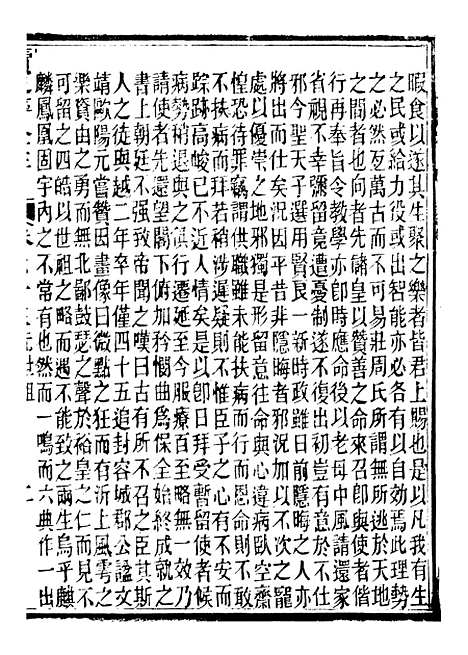 暇食以遂其生聚之樂者皆君上賜也是以凡我有生
之民或給力役或出智能亦必各有以自效焉此理勢
之必然亙萬古而不可易莊周氏所謂無所逃於天地
之間者也因先儲皇以贊善之命來召即與使者偕
行再奉旨令教學亦即時應命後以老母中風請還家
省視不幸彌留竟遭憂制遂不復出豈有意於不仕
邪今聖天子選用賢良一新時政雖前日隱晦之人亦
將出而仕矣況因平昔非隱晦者邪況加以不次之寵
處以優崇之地邪獨是形留意往命與心違病臥空齋
惶恐待罪竊謂供職雖未能扶病而行而恩命則不敢
不扶病而拜若稍涉遲疑則不惟臣子之心有所不安而
踪跡高峻已不近人情矣是以即日拜受暫留使者候
病勢稍退與之俱行遷延至今服療百至略無一效乃
請使者先還望閣下俯加矜憫曲爲保全始終成就之
書上朝廷不强致帝聞之嘆曰古有所不召之臣其斯
人之徒與越二年卒年僅四十五追封容城郡公諡文
靖歐陽元嘗贊因畫像曰微點之狂而有沂上風雩之
樂資由之勇而無北鄙鼓瑟之聲於裕皇之仁而見不
可留之四皓以世祖之略而遇不能致之兩生烏乎麒
麟鳳凰固宇內之不常有也然而一鳴而六典作一出